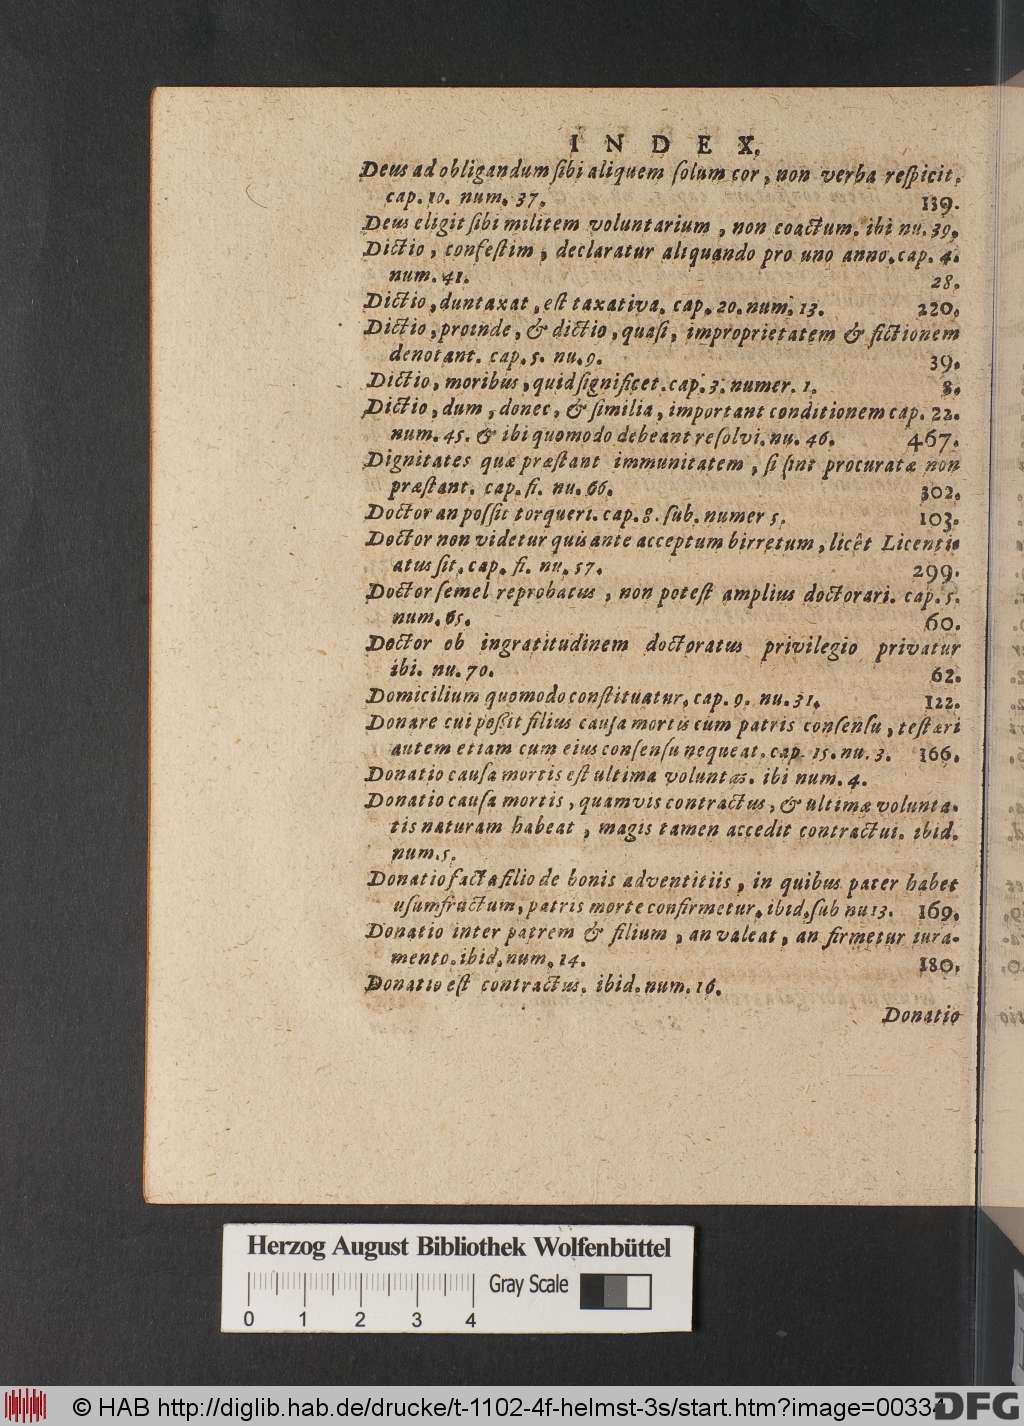 INDEX.
Deus ad obligandum ſibi aliquem ſolum cor, non verba reſpicit.
cap. 10. num. 37. 139.
Deus eligit ſibi militem voluntarium, non coactum. ibi nu. 39,
Dictio, confeſtim, declaratur aliquando pro uno anno. cap. 4.
num. 41. 28.
Dictio, duntaxat, eſt taxativa. cap. 20. num. 13. 220.
Dictio, proinde, & dictio, quaſi, improprietatem & fictionem
denotant. cap. 5. nu. 9. 39.
Dictio, moribus, quid ſignificet. cap. 3. numer. 1. 8.
Dictio, dum, donec, & ſimilia, important conditionem cap. 22.
num. 45. & ibi quomodo debeant reſolvi. nu. 46. 467.
Dignitates quæ præſtant immunitatem, ſi ſint procuratæ non
præſtant. cap. fi. nu. 66. 302.
Doctor an poſſit torqueri. cap. 8. ſub. numer 5. 103.
Doctor non videtur quis ante acceptum birretum, licêt Licenti-
atus ſit. cap. fi. nu. 57. 299.
Doctor ſemel reprobatus, non poteſt amplius doctorari. cap. 5.
num. 65. 60.
Doctor ob ingratitudinem doctoratus privilegio privatur
ibi. nu. 70. 62.
Domicilium quomodo conſtituatur. cap. 9. nu. 31. 122.
Donare cui poßit filius cauſa mortis cum patris conſenſu, teſtari
autem etiam cum eius conſenſu nequeat. cap. 15. nu. 3. 166.
Donatio cauſa mortis eſt ultima voluntas. ibi num. 4.
Donatio cauſa mortis, quamvis contractus, & ultimæ volunta-
tis naturam habeat, magis tamen accedit contractui. ibid.
num. 5.
Donatio facta filio de bonis adventitiis, in quibus pater habet
uſumfructum, patris morte confirmetur. ibid. ſub nu 13. 169.
Donatio inter patrem & filium, an valeat, an firmetur iura-
mento. ibid. num. 14. 180.
Donatio eſt contractus. ibid. num. 16.
Donatio
Herzog August Bibliothek Wolfenbüttel
Gray Scale
0 1 2 3 4
© HAB http://diglib.hab.de/drucke/t-1102-4f-helmst-3s/start.htm?image=00334
DFG